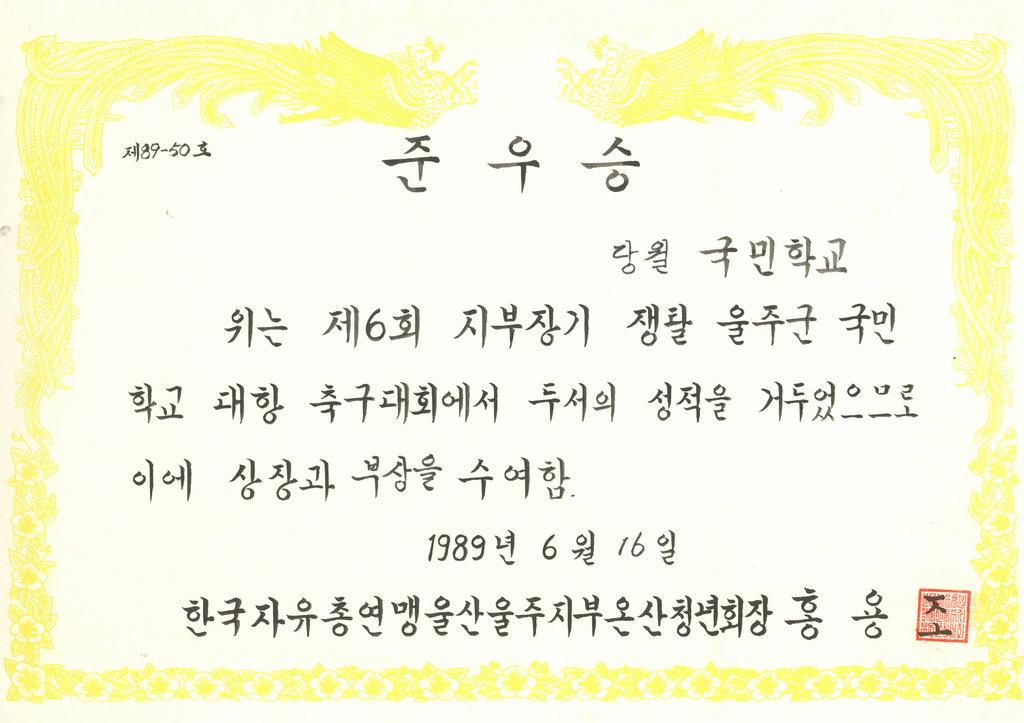 제89-50호
준우승
당월 국민학교
위는 제6회 지부장기 쟁탈 울주군 국민
학교 대항 축구대회에서 두서의 성적을 거두었으므로
이에 상장과 부상을 수여함.
1989년 6월 16일
한국자유총연맹울산울주지부온산청년회장 홍용조